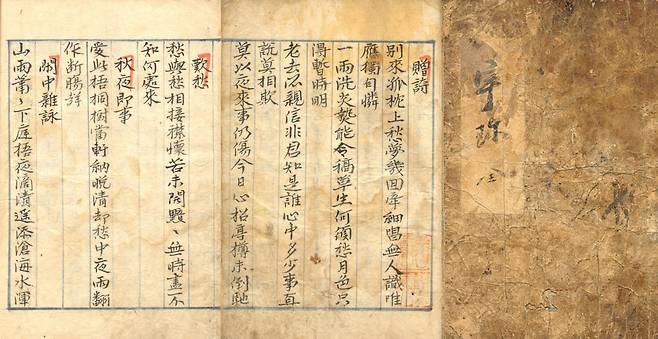 贈詩
別來孤枕上愁夢幾回牽細唱無人識唯
雁獨自憐
一雨洗炎熱能令槁草生何須愁月色只
得暫時明
老去忘親信非君知是誰心中多少事直
說莫相欺
莫以夜來事仍傷今日心招尋樽未倒
歎愁
愁與愁相接襟懷苦未開黯〻無時盡不
知何處來
秋夜即事
愛此梧桐樹當軒納晚清却愁中夜雨翻
作斷腸聲
閑中雜詠
山雨蕭〻下庭梧夜滴清遙添滄海水渾